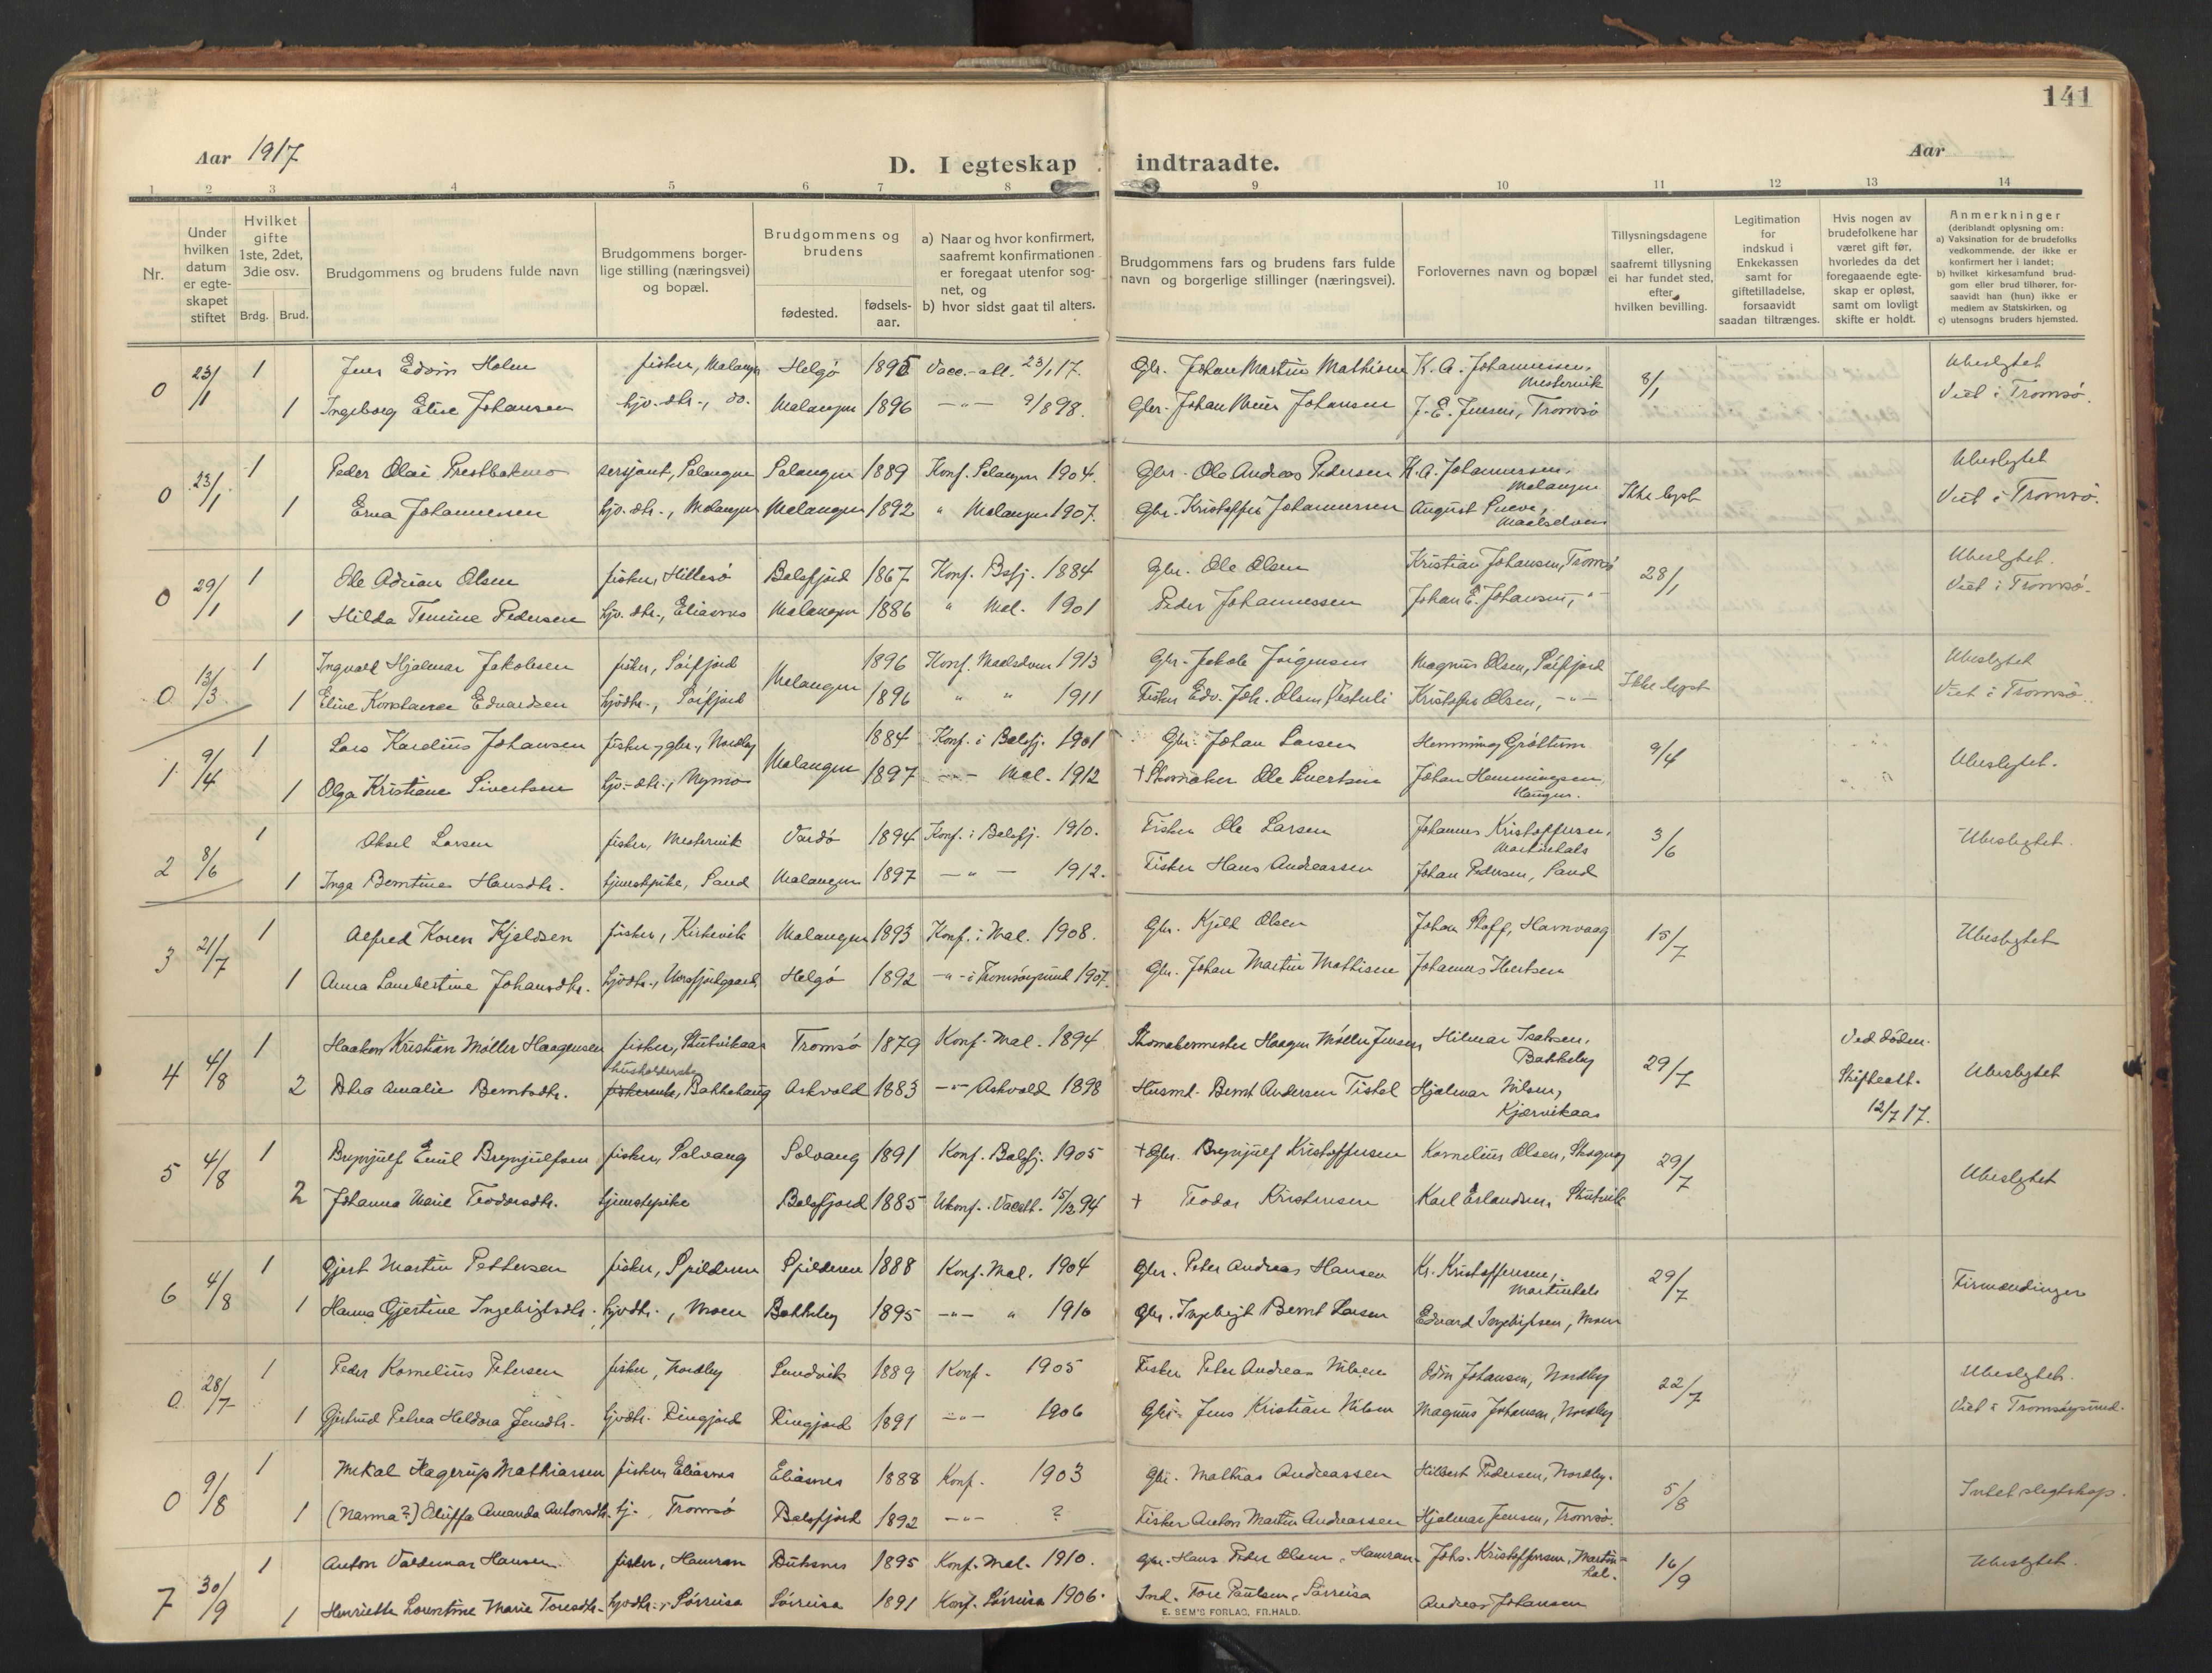 141
Aar 1917
D. I egteskap indtraadte.
Aar
1 2 3 4 5 6 7 8 9 10 11 12 13 14
Nr.
Under hvilken datum er egteskapet stiftet
Hvilket gifte 1ste, 2det, 3die osv.
Brdg. Brud.
Brudgommens og brudens fulde navn
Brudgommens borgerlige stilling (næringsvei) og bopæl.
Brudgommens og brudens
fødested.
fødselsaar.
a) Naar og hvor konfirmert, saafremt konfirmationen er foregaat utenfor sognet, og
b) hvor sidst gaat til alters.
Brudgommens fars og brudens fars fulde navn og borgerlige stillinger (næringsvei).
Forlovernes navn og bopæl
Tillysningsdagene eller, saafremt tillysning ei har fundet sted, efter hvilken bevilling.
Legitimation for indskud i Enkekassen samt for giftetilladelse, forsaavidt saadan tiltrænges.
Hvis nogen av brudefolkene har været gift før, hvorledes da det foregaaende egteskap er opløst, samt om lovligt skifte er holdt.
Anmerkninger (deriblandt oplysning om:
a) Vaksination for de brudefolks vedkommende, der ikke er konfirmert her i landet;
b) hvilket kirkesamfund brudgom eller brud tilhører, forsaavidt han (hun) ikke er medlem av Statskirken, og
c) utensogns bruders hjemsted.
0 23/1 1 Jens Edvin Holm fisker, Malangen Helgö 1895 Vacc.-att. 23/1 17. Gbr. Johan Martin Mathisen K. A. Johannessen, Mestervik 8/1 Ubeslegtet
1 Ingeborg Elise Johansen hjv. dtr., do. Malangen 1896 -"- 9/8 98. Gbr. Johan Johansen J. E. Jensen, Tromsö Viet i Tromsö.
0 23/1 1 Peder Olai Prestbakmo sersjant, Salangen Salangen 1889 Konf. Salangen 1904. Gbr. Ole Andreas Pedersen K. A. Johannessen, Malangen Ikke lyst Ubeslegtet
1 Erna Johannessen hjv. dtr., Malangen Malangen 1892 " Malangen 1907. Gbr. Kristoffer Johannessen August Maalselven Viet i Tromsö.
0 29/1 1 Ole Adrian Olsen fisker, Hillesö Balsfjord 1867 Konf. Bsfj. 1884 Gbr. Ole Olsen Kristian Johansen, Tromsö 28/1 Ubeslegtet.
1 Hilda Pedersen hjv. dtr., Eliasnes Malangen 1886 " Mal. 1901 Peder Johannessen Johan E. Johansen, -"- Viet i Tromsö.
0 13/3 1 Ingvald Hjalmar Jakobsen fisker, Malangen 1896 Konf. Maalselven 1913 Gbr. Jakob Jörgensen Magnus Olsen, Ikke lyst Ubeslegtet
1 Eline Konstanse Edvardsen hjvdtr., 1896 " " 1911 Fisker Edv. Joh. Olsen Kristoffer Olsen, -"- Viet i Tromsö.
1 9/4 1 Lars Kardius Johansen fisker, gbr., Nordby Malangen 1884 Konf. i Balsfj. 1901 Gbr. Johan Larsen Hemming Gröttum 9/4 Ubeslegtet.
1 Olga Kristiane Sivertsen hjv. dtr., Nymo 1897 -"- Mal. 1912 + Skomaker Ole Sivertsen Johan Hemmingsen
2 8/6 1 Aksel Larsen fisker, Mestervik Vardö 1894 Konf. i Balsfj. 1910. Fisker Ole Larsen Johannes Kristoffersen, Martinhals 3/6 Ubeslegtet.
1 Inga Berntine Hansdtr. tjenestepike, Sand Malangen 1897 -"- 1912. Fisker Hans Andreassen Johan Pedersen, Sand
3 21/7 1 Alfred Koren Kjeldsen fisker, Kirkevik Malangen 1893 Konf. i Mal. 1908. Gbr. Kjeld Olsen Johan Hamnvaag 15/7 Ubeslegtet
1 Anna Lambertine Johansdtr. hjvdtr., Helgö 1892 -"- i Tromsöysund 1907. Gbr. Johan Martin Mathisen Johannes
4 4/8 1 Haakon Kristian Møller Haagensen fisker, Tromsö 1879 Konf. Mal. 1894 Haagen Møller Jensen Hilmar Isaksen, Bakkeby 29/7 Ved döden. Ubeslegtet
2 Amalie Berntsdtr. husholderske Bakkehaug Askvold 1883 -"- Askvold 1898 Husmd. Bernt Andersen Tistel Hjalmar Nilsen, Kjærvikaas Skifteatt. 12/7 17.
5 4/8 1 Brynjulf Emil Brynjulfsen fisker, Solvang Solvang 1891 Konf. Balsfj. 1905 + Gbr. Brynjulf Kristoffersen Kornelius Olsen, 29/7 Ubeslegtet
2 Johanna Marie Teodorsdtr. tjenestepike Balsfjord 1885 Ukonf. Vacatt. 15/12 94 + Teodor Kristensen Karl Erlandsen,
6 4/8 1 Gjert Martin Pettersen fisker, Spilderen Spilderen 1888 Konf. Mal. 1904 Gbr. Peter Andreas Hansen Kr. Kristoffersen, Martinhals 29/7 Firmændinger
1 Hanna Gjertine Ingebrigtsdtr. hjvdtr., Moen Bakkeby 1895 -"- " 1910 Gbr. Ingebrigt Bernt Larsen Edvard Ingebrigtsen, Moen
0 28/7 1 Peder Kornelius Petersen fisker, Nordby Sandvik 1889 Konf. 1905 Fisker Peter Andreas Nilsen Odin Johansen, Nordby 22/7 Ubeslegtet.
1 Gjertrud Petrea Heldora Jensdtr. hjvdtr. Ringjord Ringjord 1891 -"- 1906 Gbr. Jens Kristian Nilsen Magnus Johansen, Nordby Viet i Tromsöysund.
0 9/8 1 Mikal Hagerup Mathiassen fisker, Eliasnes Eliasnes 1888 Konf. 1903 Gbr. Mathias Andreassen Hilbert Pedersen, Nordby. 5/8 Intet slegtskap.
1 (Nanna?) Amanda Antonsdtr. tj., Tromsö Balsfjord 1892 -"- ? Fisker Anton Martin Andreassen Hjalmar Jensen, Tromsö.
7 30/9 1 Anton Valdemar Hansen fisker, Hamran 1895 Konf. Mal. 1910. Gbr. Hans Peder Olsen, Hamran Johs. Kristoffersen, Martinhal. 16/9 Ubeslegtet.
1 Henriette Lorentine Marie Toresdtr. hjvdtr., Sörreisa Sörreisa 1891 Konf. Sörreisa 1906. Ind. Tore Paulsen, Sörreisa Andreas Johansen
E. SEM'S FORLAG, FR.HALD.